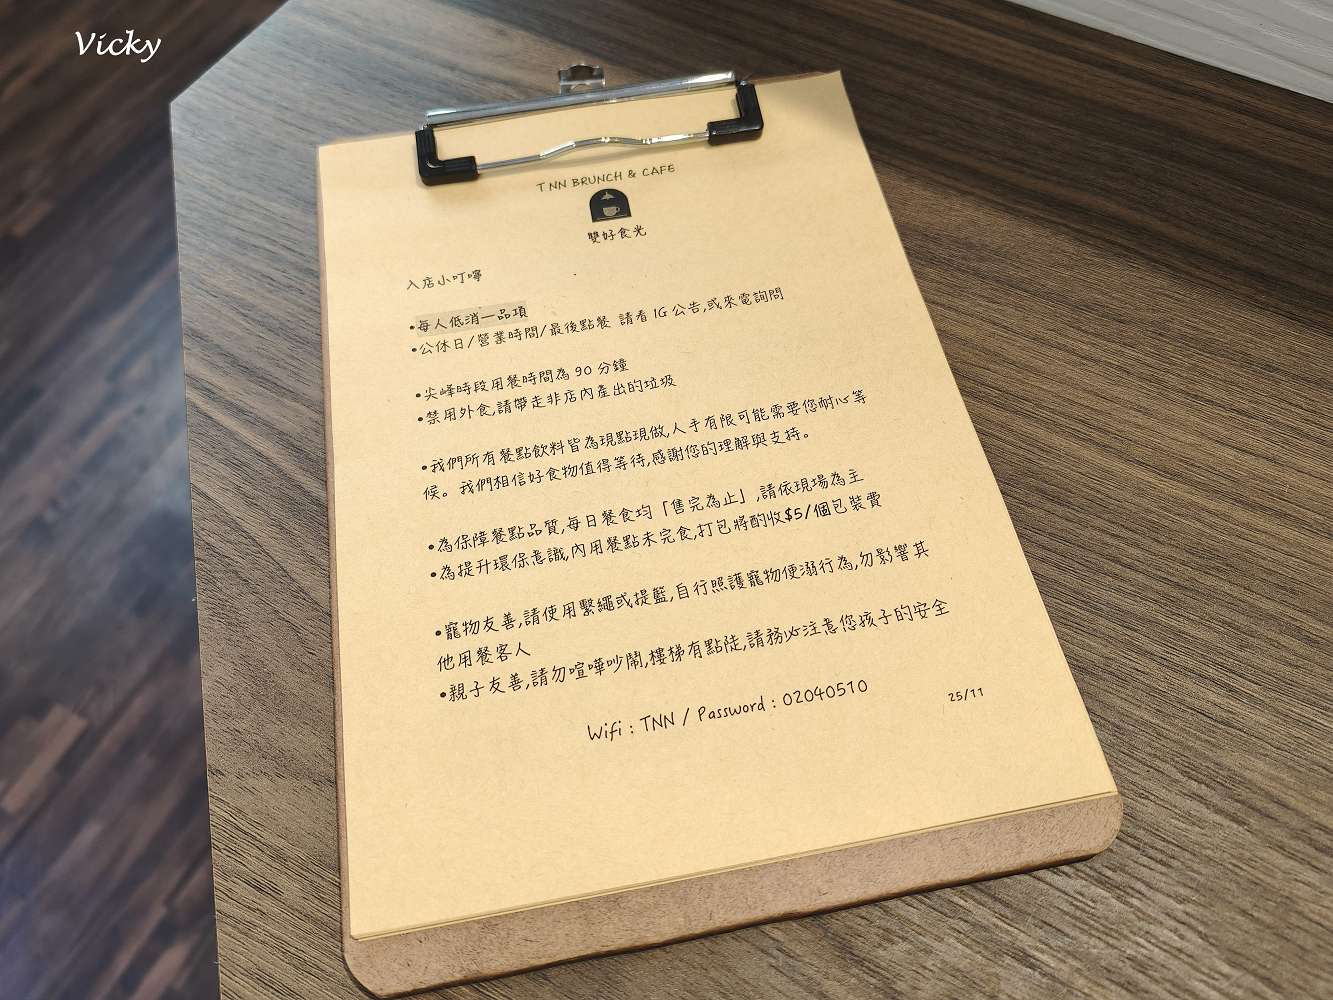 Vicky
TNN BRUNCH & CAFE
雙好食光
入店小叮嚀
•每人低消一品項
•公休日/營業時間/最後點餐 請看IG公告,或來電詢問
•尖峰時段用餐時間為90分鐘
•禁用外食,請帶走非店內產出的垃圾
•我們所有餐點飲料皆為現點現做,人手有限可能需要您耐心等
候。我們相信好食物值得等待,感謝您的理解與支持。
•為保障餐點品質,每日餐食均「售完為止」,請依現場為主
•為提升環保意識,內用餐點未完食,打包將酌收$5/個包裝費
•寵物友善,請使用繫繩或提籃,自行照護寵物便溺行為,勿影響其
他用餐客人
•親子友善,請勿喧嘩吵鬧,樓梯有點陡,請務必注意您孩子的安全
Wifi : TNN / Password : 02040510
25/11